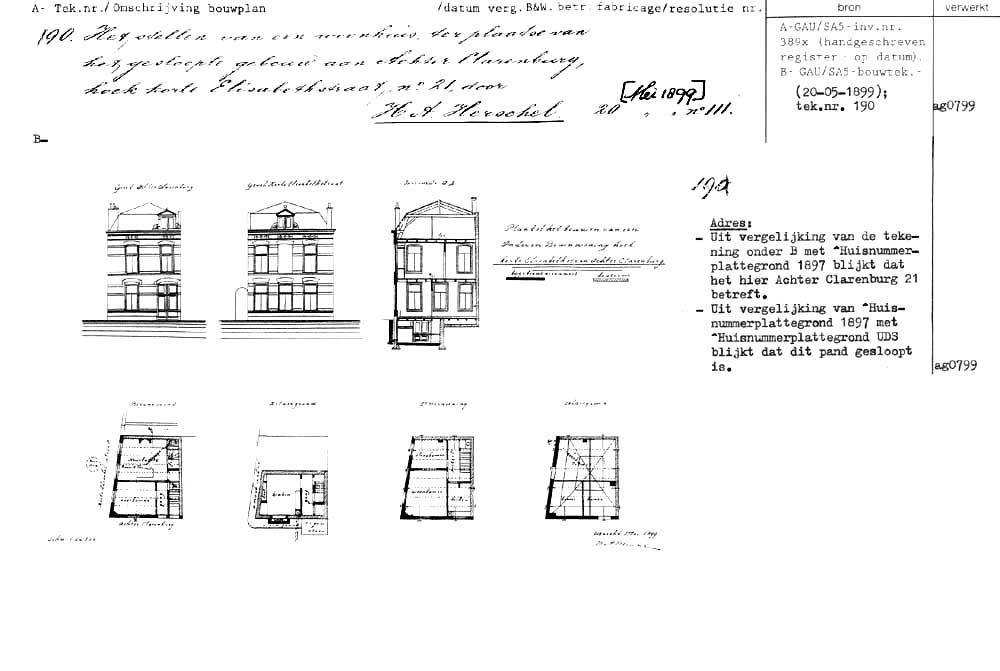 A- Tek.nr./ Omschrijving bouwplan /datum verg.B&W. betr. fabricage/resolutie nr.
bron
verwerkt
190. Het stellen van een woonhuis, ter plaatse van
het gesloopte gebouw aan Achter Clarenburg,
hoek korte Elisabethstraat, no 21, door
H. A. Herschel. 20 " " no 111.
[Mei 1899]
A-GAU/SA5-inv.nr.
389x (handgeschreven
register - op datum).
B- GAU/SA5-bouwtek.-
(20-05-1899);
tek.nr. 190
ag0799
B-
Gevel Achter Clarenburg
Gevel Korte Elisabethstraat
Doorsnede A B
Plan tot het bouwen van een
Beneden Bovenwoning hoek
korte Elisabethstr. en Achter Clarenburg
190
Adres:
- Uit vergelijking van de teke-
ning onder B met "Huisnummer-
plattegrond 1897 blijkt dat
het hier Achter Clarenburg 21
betreft.
- Uit vergelijking van "Huis-
nummerplattegrond 1897 met
"Huisnummerplattegrond UDS
blijkt dat dit pand gesloopt
is.
ag0799
Achter Clarenburg
Utrecht Mei 1899